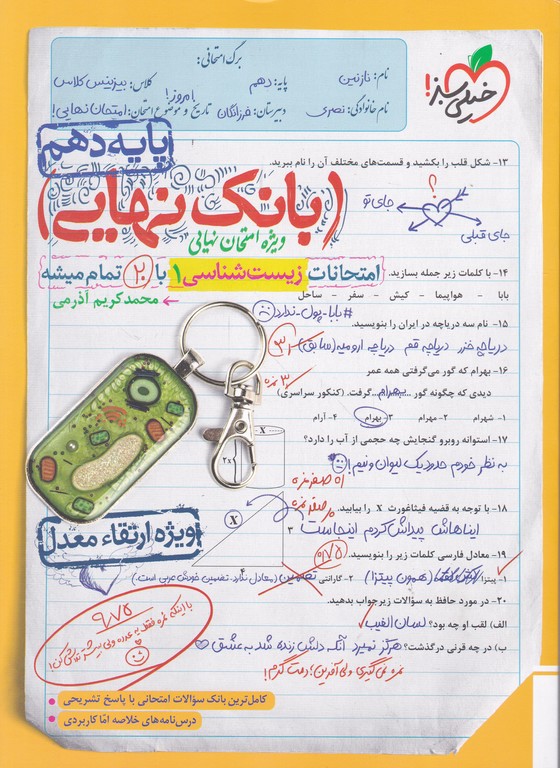 خیلی سبز!
برگ امتحانی:
نام: نازنین
پایه: دهم
کلاس: بیزینس کلاس
نام خانوادگی: نصری
دبیرستان: فرزانگان
تاریخ و موضوع امتحان: امروز! امتحان نهایی!
پایه دهم
۱۳- شکل قلب را بکشید و قسمت‌های مختلف آن را نام ببرید.
(بانک نهایی)
ویژه امتحان نهایی
؟
جای تو
جای قبلی
امتحانات زیست‌شناسی ۱ با ۲۰ تمام میشه
محمدکریم آذرمی
۱۴- با کلمات زیر جمله بسازید.
بابا - هواپیما - کیش - سفر - ساحل
#بابا-پول-ندارد
۱۵- نام سه دریاچه در ایران را بنویسید.
دریاچه خزر دریاچه قم دریاچه ارومیه (سابق)
۱۶- بهرام که گور می‌گرفتی همه عمر
دیدی که چگونه گور ...بهرام... گرفت. (کنکور سراسری)
۳ نمره
۱- شهرام ۲- مهرام ۳- بهرام ۴- آرام
۱۷- استوانه روبرو گنجایش چه حجمی از آب را دارد؟
X
۲X
به نظر خودم حدود یک لیوان و نیم!
۱۸- با توجه به قضیه فیثاغورث X را بیابید.
X
۳
۴
ایناهاش پیداش کردم اینجاست
ویژه ارتقاء معدل
۱۹- معادل فارسی کلمات زیر را بنویسید.
۰/۷۵
۱- پیتزا (همون پیتزا) ۲- گارانتی تضمین (معادل ندارد. تضمین خودش عربی است.)
۲۰- در مورد حافظ به سؤالات زیر جواب بدهید.
الف) لقب او چه بود؟ لسان الغیب
ب) در چه قرنی درگذشت؟ هرگز نمیرد آنکه دلش زنده شد به عشق
نمره نمی‌گیری ولی آفرین؛ دمت گرم!
۹/۷۵
با اینکه نمره فقط یه عدده ولی بیشتر تلاش کن!
کامل‌ترین بانک سؤالات امتحانی با پاسخ تشریحی
درس‌نامه‌های خلاصه امّا کاربردی